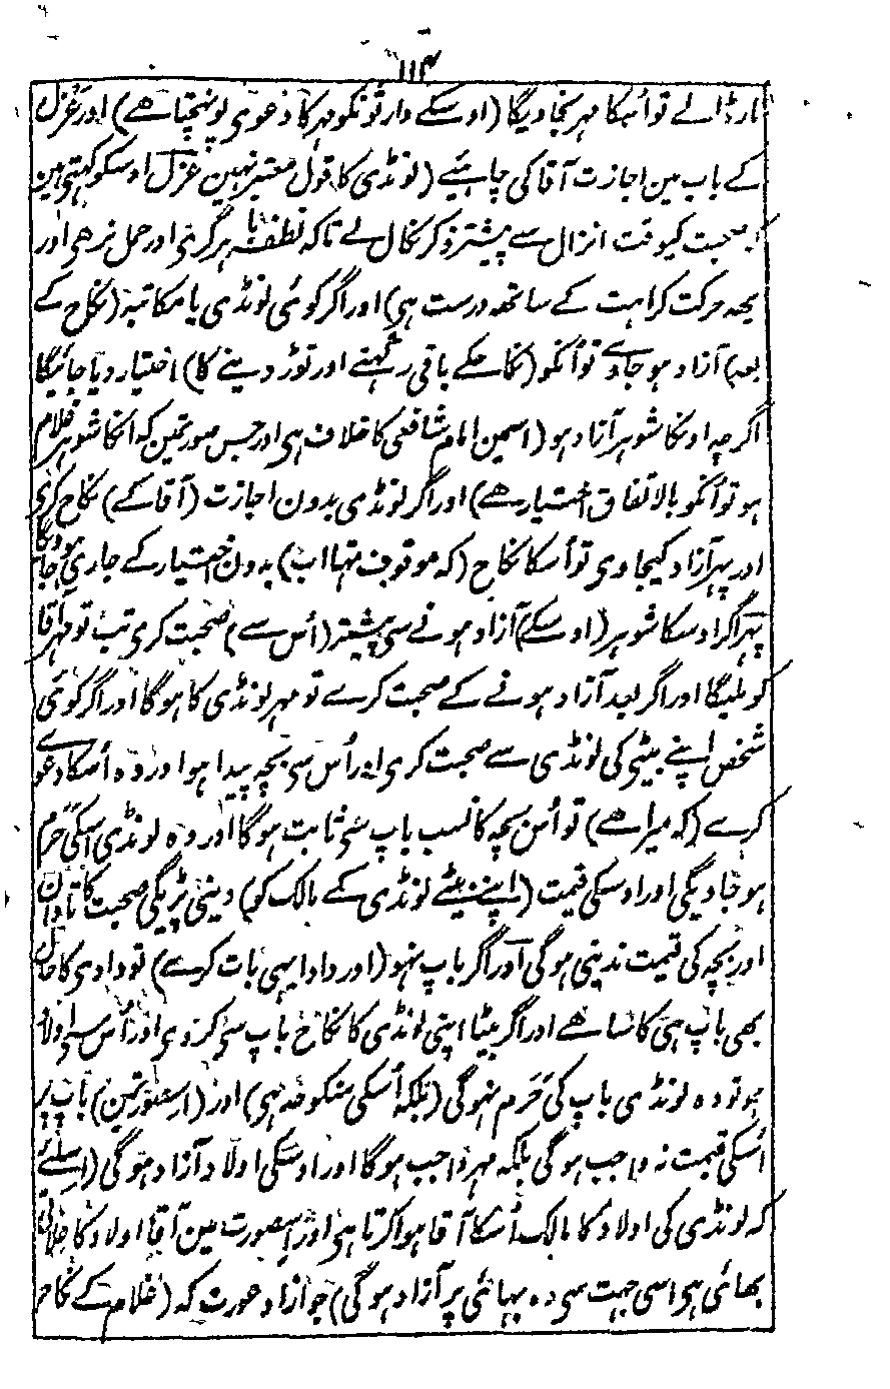 ۱۱۴
مارڈالے تو اُسکا مہر بجا دیگا (اوسکے وارثونکو مہر کا دعوی پونہچتا ہے) اور عزل
کے باب مین اجازت آقا کی چاہئیے (لونڈی کا قول معتبر نہین عزل اوسکو کہتی ہین
کہ صحبت کیوقت انزال سے پیشتر ذکر نکال لے تاکہ نطفہ باہر گری اور حمل نرہی اور
یہہ حرکت کراہت کے ساتھہ درست ہی) اور اگر کوئی لونڈی یا مکاتبہ (نکاح کے
بعد) آزاد ہو جاوے تو اُنکو (نکاحکے باقی رکہنے اور توڑ دینے کا) اختیار دیا جائیگا
اگرچہ اونکا شوہر آزاد ہو (اسمین امام شافعی کا خلاف ہی اور جس صورتمین کہ اُنکا شوہر غلام
ہو تو اُنکو بالاتفاق اختیار ہے) اور اگر لونڈی بدون اجازت (آقا کے) نکاح کری
اور پہر آزاد کیجاوی تو اُسکا نکاح (کہ موقوف تہا اب) بدون اختیار کے جاری ہو جاویگا
پہر اگر اوسکا شوہر (اوسکے) آزاد ہونے سی پیشتر (اُس سے) صحبت کری تب تو مہر آقا
کو ملیگا اور اگر بعد آزاد ہونے کے صحبت کرے تو مہر لونڈی کا ہوگا اور اگر کوئی
شخص اپنے بیٹی کی لونڈی سے صحبت کری اور اُس سی بچہ پیدا ہوا اور وہ اُسکا دعوے
کرے (کہ میرا ہے) تو اُس بچہ کا نسب باپ سی ثابت ہوگا اور وہ لونڈی اُسکی حرم
ہو جاویگی اور اوسکی قیمت (اپنے بیٹے لونڈی کے مالک کو) دینی پڑیگی صحبت کا تاوان
اور بچہ کی قیمت ندینی ہوگی اور اگر باپ نہو (اور دادا یہی بات کرے) تو دادی کا حال
بھی باپ ہی کا سا ہے اور اگر بیٹا اپنی لونڈی کا نکاح باپ سی کردی اور اُس سی اولاد
ہو تو وہ لونڈی باپ کی حرم نہوگی (بلکہ اُسکی منکوحہ ہی) اور (اس صورتمین) باپ پر
اُسکی قیمت نہ واجب ہوگی بلکہ مہر واجب ہوگا اور اوسکی اولاد آزاد ہوگی (اسلئے
کہ لونڈی کی اولاد کا مالک اُسکا آقا ہوا کرتا ہی اور اس صورت مین آقا اولاد کا علاتی
بھائی ہی اسی جہت سی وہ بہائی پر آزاد ہوگی) جو آزاد عورت کہ (غلام کے نکاح